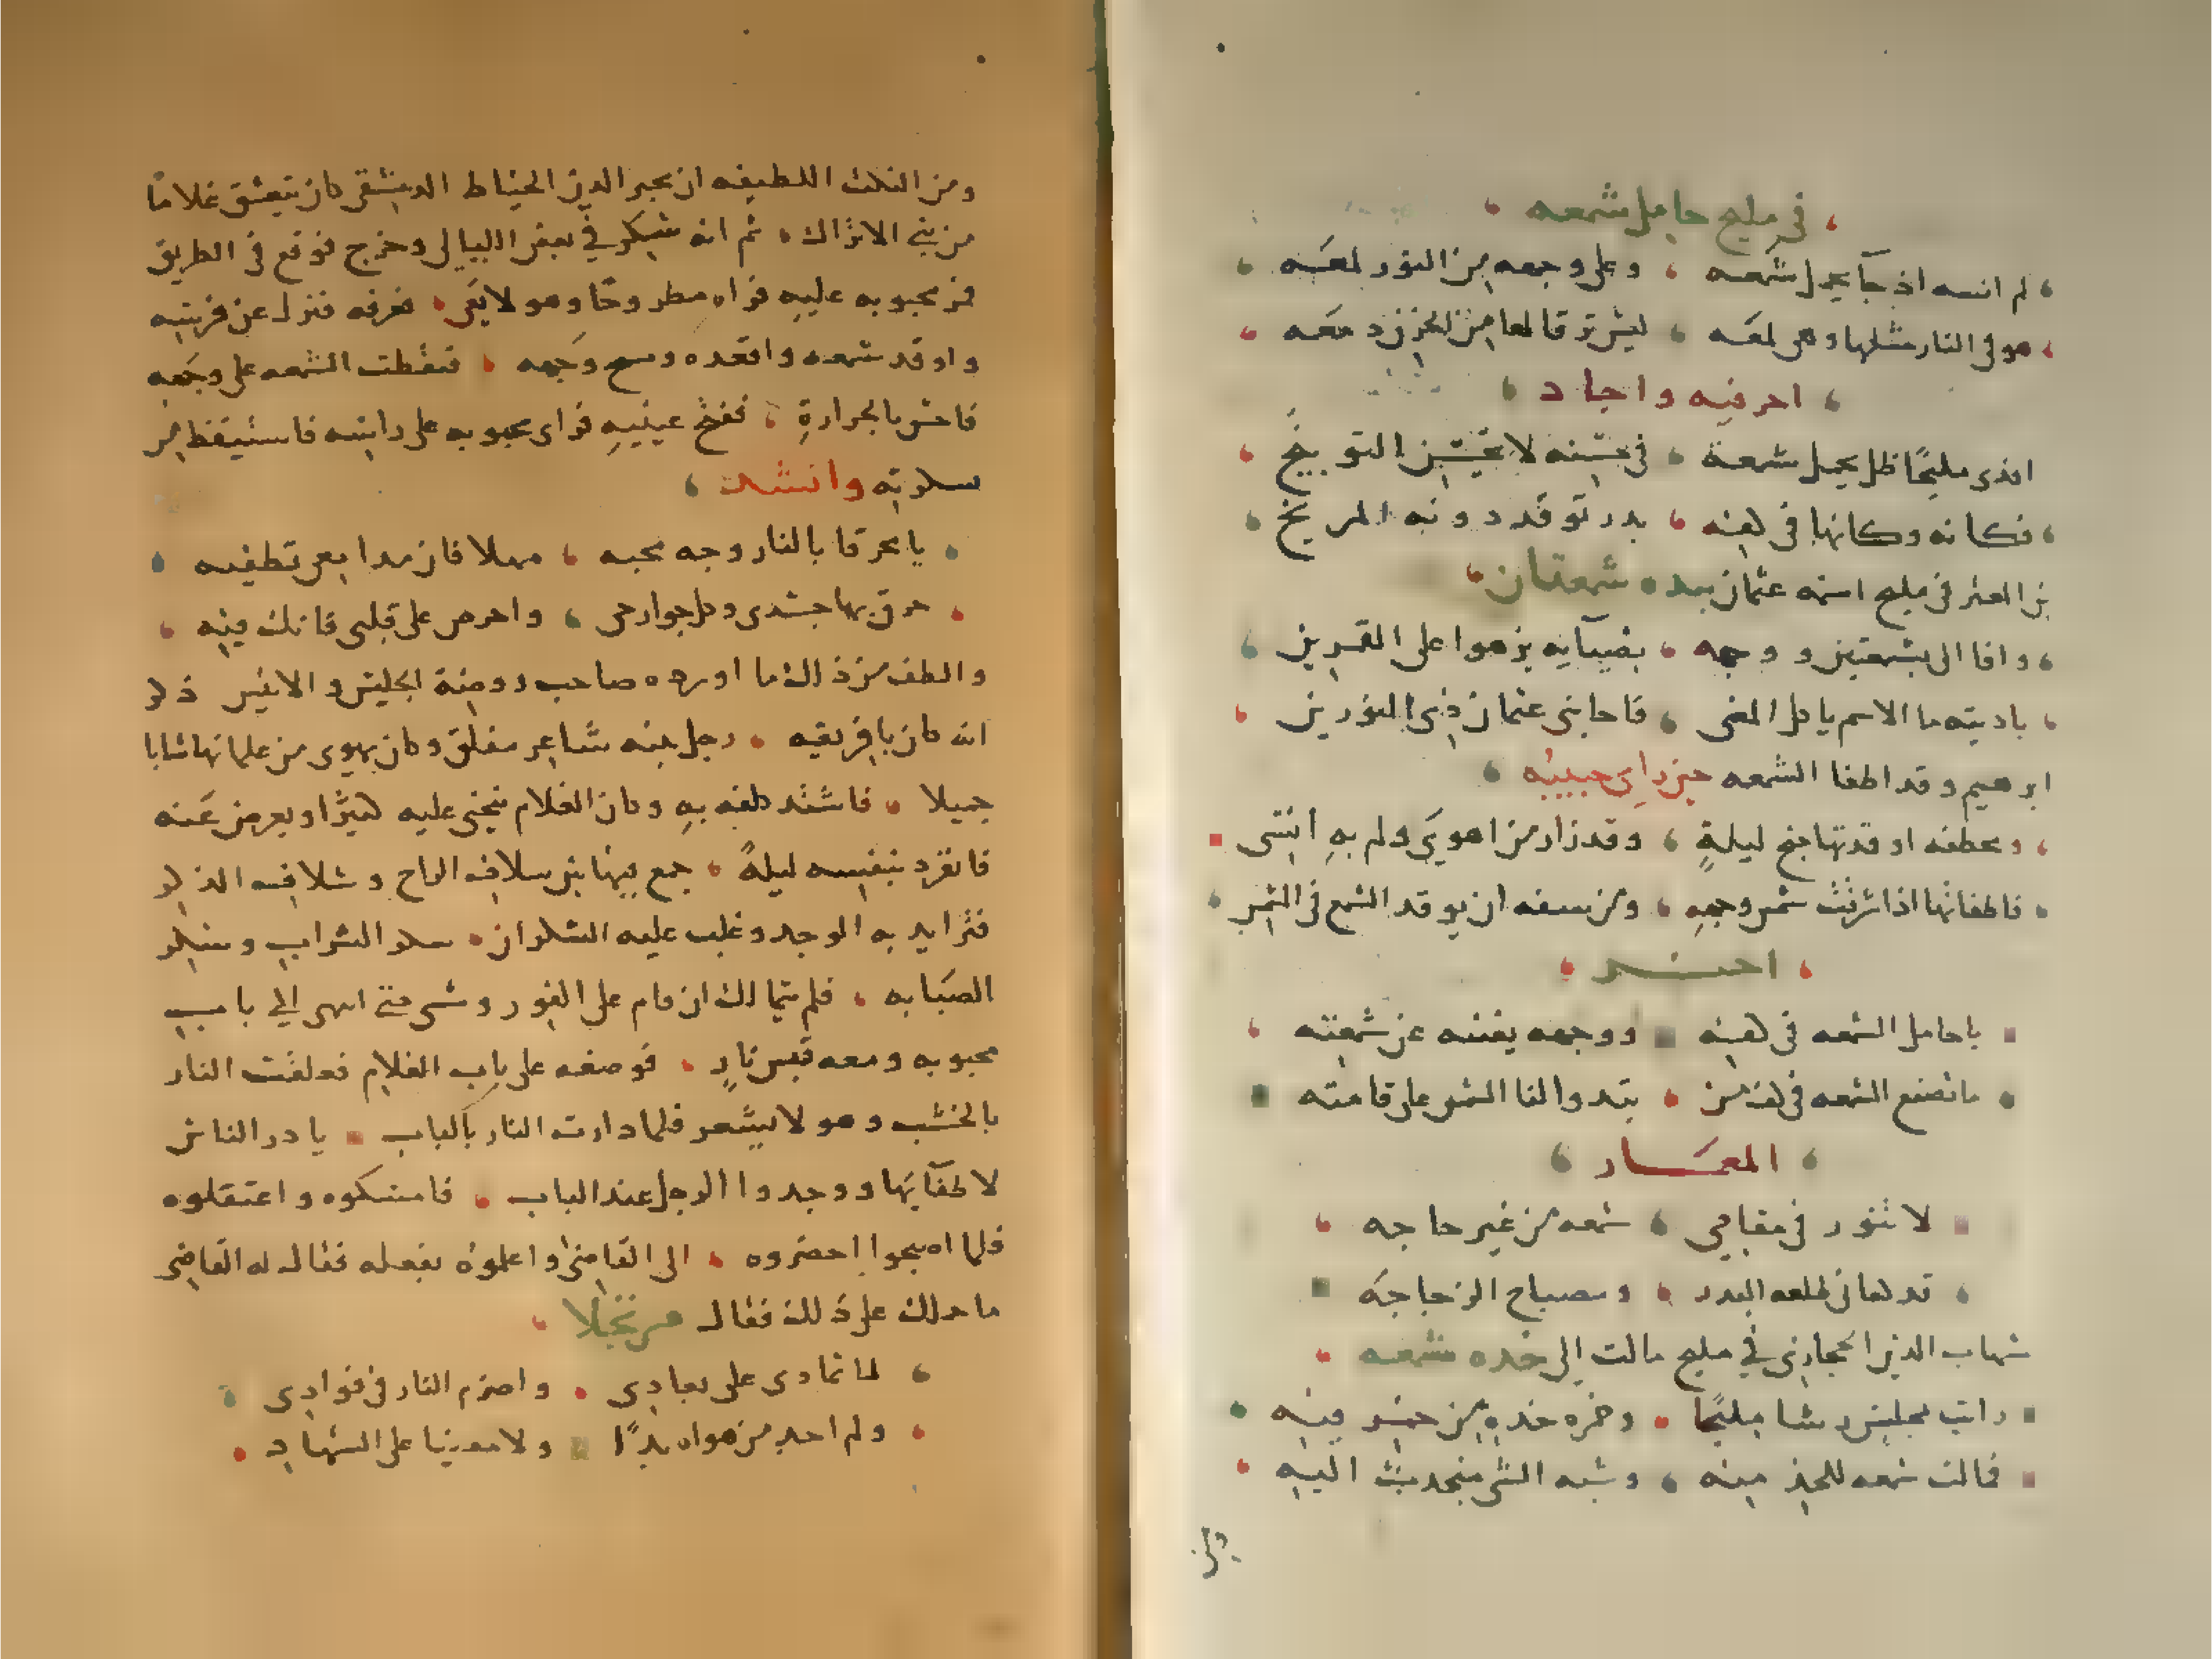 في مليح حامل شمعه
لم انسه اذ جآ يحمل شمعه وعلى وجهه من النور لمعه
هو في النار مثلها وهى لمعه ليش ترقا لها من الحزن دمعه
اخر فيه واجاد
افدى مليحًا ظل يحمل شمعة في حسنه لا يحسن التوبيخ
فكانه وكانها في كفه بدر توقد دونه المريخ
بن العز في مليح اسمه عثمان بيده شمعتان
وافا الى بشمعتين ووجهه بضيآيه يزهوا على القمرين
ناديته ما الاسم يا كل المنى فاجابنى عثمان ذى النورين
ابرهيم وقد اطفا الشمعه حين راى حبيبه
اوقدتها جنح ليلةٍ وقد زار من اهوى ولم به انسى
فاطفاتها اذ اشرقت شمس وجههِ ومن سفه ان يوقد الشمع في الشمس
اخر
يا حامل الشمعه في كفه ووجهه يغنه عن شمعته
ما تصنع الشمعه في كف من يتدوا لنا الشمس على قامته
المعمار
لا تنور في مقامى شمعه من غير حاجه
قد كفانى طلعه البدر ومصباح الزجاجه
شهاب الدين الحجازى في مليح مالت الى خده شمعه
رايت بمجلس رشا مليحًا وخمره خده من حسن فيه
فمالت شمعه للخد منه وشبه الشى منجدب اليه
ومن
ومن النكت اللطيفه ان مجير الدين الخياط الدمشقى كان يتعشق غلامًا
من بنى الاتراك ثم انه سكر في بعض الليالى وخرج فوقع في الطريق
فمر محبوبه عليه فراه مطروحًا وهو لا يعى فعرفه فنزل عن فرسه
واوقد شمعه واقعده ومسح وجهه فنقطت الشمعه على وجهه
فاحس بالحرارة ففتح عينيه فراى محبوبه على راسه فاستيقظ من
سكرته وانشد
يا محرقا بالنار وجه محبه مهلا فان مدامعى تطفيه
حرق بها جسدى وكل جوارحى واحرص على قلبى فانك فيه
والطف من ذالك ما اورده صاحب روضة الجليس والانيس ذكر
انه كان بافريقيه رجل شاعر مفلق وكان يهوى من غلمانها شابا
جميلا فاشتد كلفه به وكان الغلام يتجنى عليه كثيرًا ويعرض عنه
فانفرد بنفسه ليلةً جمع فيها بين سلاف الراح وسلاف الذكر
فتزايد به الوجد وغلب عليه السكران سكر الشراب وسكر
الصبابه فلم يتمالك ان قام على الفور ومشى حتى انتهى الى باب
محبوبه ومعه قبس نارٍ فوضعه على باب الغلام فعلقت النار
بالخشب وهو لا يشعر فلما دارت النار بالباب بادر الناس
لاطفآيها ووجدوا الرجل عند الباب فامسكوه واعتقلوه
فلما اصبحوا احضروه الى القاضى واعلموه بفعله فقال له القاضى
ما حملك على ذلك فقال مرتجلا
لما تمادى على بعادى واضرم النار في فوادى
ولم اجد من هواه بدًا ولا معينا على السهاد